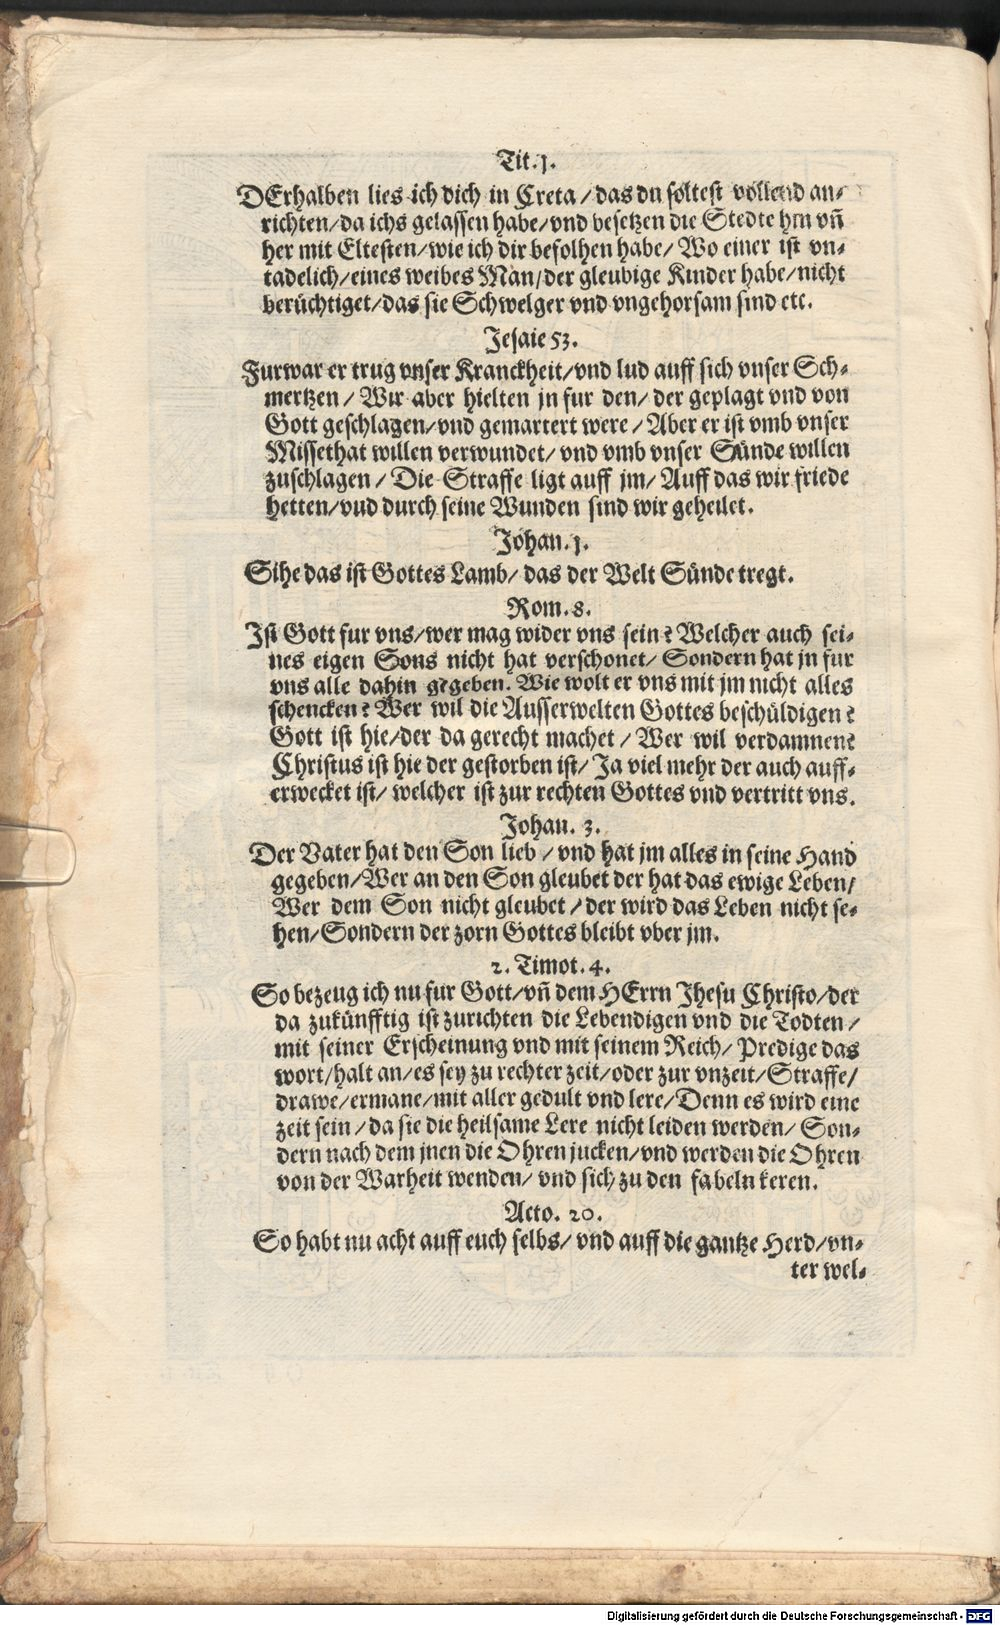 Tit. 1.
DErhalben lies ich dich in Creta / das du soltest vollend an⸗
richten / da ichs gelassen habe / vnd besetzen die Stedte hin vñ
her mit Eltesten / wie ich dir befolhen habe / Wo einer ist vn⸗
tadelich / eines weibes Man / der gleubige Kinder habe / nicht
berüchtiget / das sie Schwelger vnd vngehorsam sind etc.
Jesaie 53.
Furwar er trug vnser Kranckheit / vnd lud auff sich vnser Sch⸗
mertzen / Wir aber hielten jn fur den / der geplagt vnd von
Gott geschlagen / vnd gemartert were / Aber er ist vmb vnser
Missethat willen verwundet / vnd vmb vnser Sünde willen
zuschlagen / Die Straffe ligt auff jm / Auff das wir friede
hetten / vnd durch seine Wunden sind wir geheilet.
Johan. 1.
Sihe das ist Gottes Lamb / das der Welt Sünde tregt.
Rom. 8.
Ist Gott fur vns / wer mag wider vns sein? Welcher auch sei⸗
nes eigen Sons nicht hat verschonet / Sondern hat jn fur
vns alle dahin gegeben. Wie wolt er vns mit jm nicht alles
schencken? Wer wil die Ausserwelten Gottes beschüldigen?
Gott ist hie / der da gerecht machet / Wer wil verdamnen?
Christus ist hie der gestorben ist / Ja viel mehr der auch auff⸗
erwecket ist / welcher ist zur rechten Gottes vnd vertritt vns.
Johan. 3.
Der Vater hat den Son lieb / vnd hat jm alles in seine Hand
gegeben / Wer an den Son gleubet der hat das ewige Leben /
Wer dem Son nicht gleubet / der wird das Leben nicht se⸗
hen / Sondern der zorn Gottes bleibt vber jm.
2. Timot. 4.
So bezeug ich nu fur Gott / vñ dem HErrn Jhesu Christo / der
da zukünfftig ist zurichten die Lebendigen vnd die Todten /
mit seiner Erscheinung vnd mit seinem Reich / Predige das
wort / halt an / es sey zu rechter zeit / oder zur vnzeit / Straffe /
drawe / ermane / mit aller gedult vnd lere / Denn es wird eine
zeit sein / da sie die heilsame Lere nicht leiden werden / Son⸗
dern nach dem jnen die Ohren jucken / vnd werden die Ohren
von der Warheit wenden / vnd sich zu den fabeln keren.
Acto. 20.
So habt nu acht auff euch selbs / vnd auff die gantze Herd / vn⸗
ter wel⸗
Digitalisierung gefördert durch die Deutsche Forschungsgemeinschaft - DFG